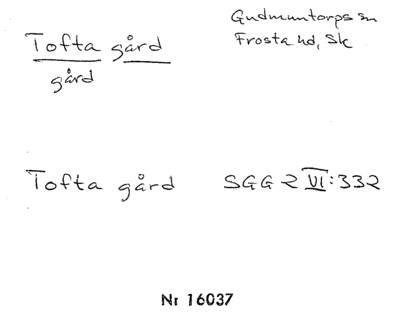 Tofta gård
gård
Gudmuntorps sn
Frosta hd, Sk
Tofta gård SGG 2 VI:332
Nr 16037